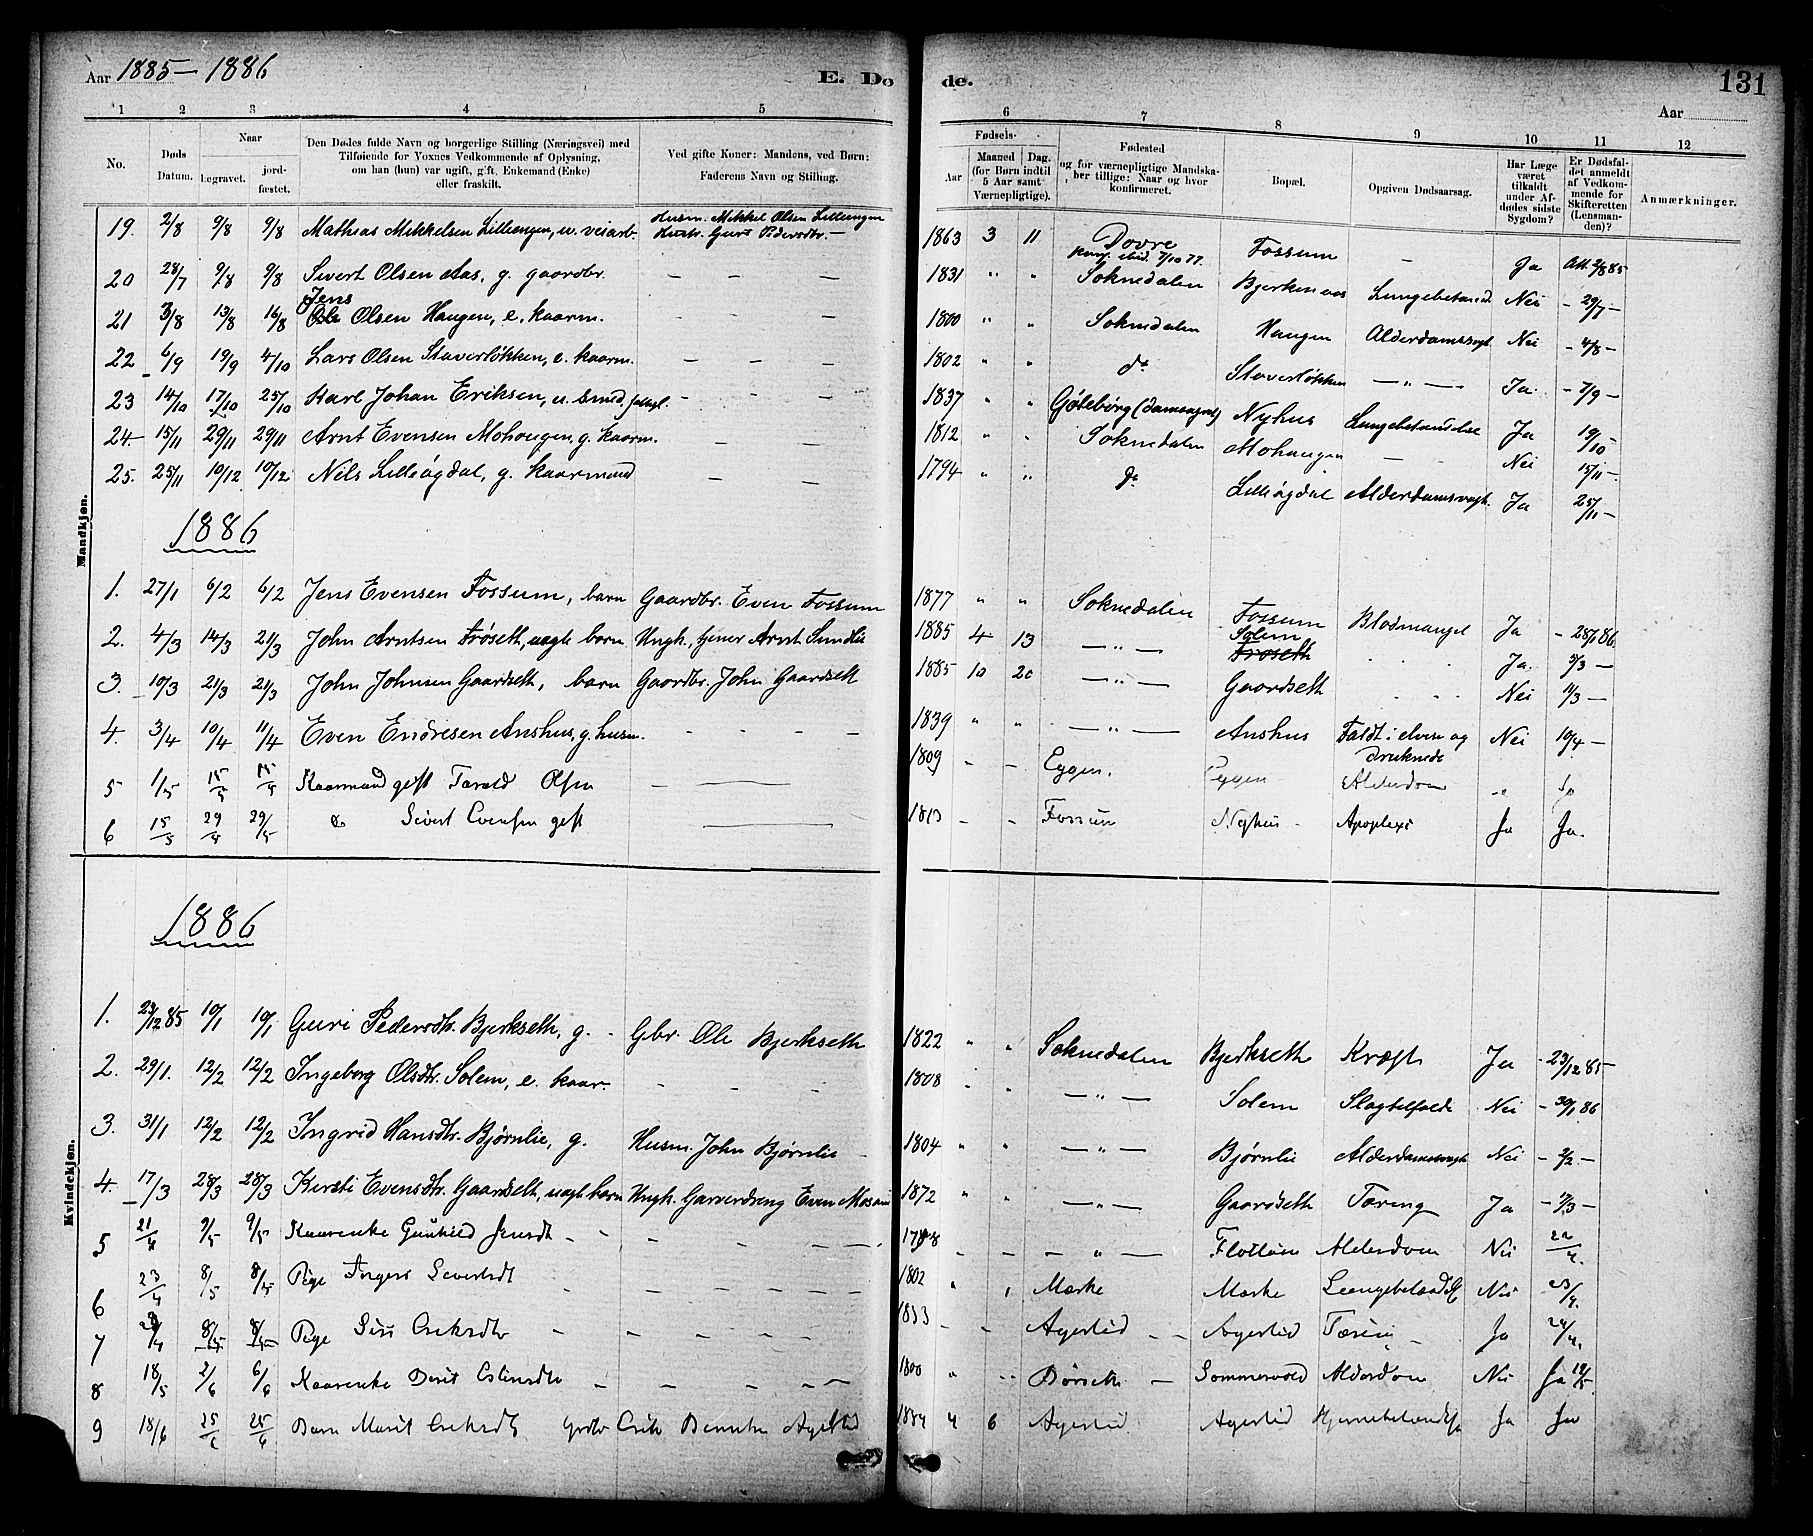 Aar 1885–1886
E. Dø
de.
131
Aar
1 2 3 4 5 6 7 8 9 10 11 12
No.
Døds Datum.
Naar
begravet.
jord-fæstet.
Den Dødes fulde Navn og borgerlige Stilling (Næringsvei) med
Tilføiende for Voxnes Vedkommende af Oplysning,
om han (hun) var ugift, gift, Enkemand (Enke)
eller fraskilt.
Ved gifte Koner: Mandens, ved Børn:
Faderens Navn og Stilling.
Fødsels-
Aar
Maaned Dag.
(for Børn indtil
5 Aar samt
Værnepligtige).
Fødested
og for værnepligtige Mandska-
ber tillige: Naar og hvor
konfirmeret.
Bopæl.
Opgiven Dødsaarsag.
Har Læge
været
tilkaldt
under Af-
dødes sidste
Sygdom?
Er Dødsfal-
det anmeldt
af Vedkom-
mende for
Skifteretten
(Lensman-
den)?
Anmærkninger.
Mandkjøn.
19. 2/8 9/8 9/8 Mathias Mikkelsen Lilleengen, u. veiarb. Husm. Mikkel Olsen Lilleengen Hustr. Guri Pedersdtr. – 1863 3 11 Dovre Konf. ibid. 7/10 77. Fossum – Ja Att. 2/8 85
20 28/7 9/8 9/8 Sivert Olsen Aas, g. gaardbr. – – – 1831 " " Soknedalen Bjerkenaas Lungebetænd. Nei – 29/7 –
21 3/8 13/8 16/8 Jens Ole Olsen Haugen, e. kaarm. – – – 1800 " " Soknedalen Haugen Alderdomssvagh. Nei – 4/8 –
22 6/9 19/9 4/10 Lars Olsen Staverløkken, e. kaarm. – – – 1802 " " do Staverløkken – " – Ja. – 7/9 –
23 14/10 17/10 25/10 Karl Johan Eriksen, u. smed. – – – 1837 " " Göteborg Nyhus Lungebetændelse Ja 19/10
24 15/11 29/11 29/11 Arnt Evensen Mohaugen, g. kaarm. – – 1812 " " Soknedalen Mohaugen – – Nei 15/11 –
25. 25/11 10/12 10/12 Nils Lilleøgdal, g. kaarmand – – 1794 " " do Lilleøgdal Alderdomssvagh. Ja 25/11 –
1886
1. 27/1 6/2 6/2 Jens Evensen Fossum, barn Gaardbr. Even Fossum 1877 " " Soknedalen Fossum Blodmangel Ja – 28/1 86.
2. 4/3 14/3 21/3 John Arntsen Frøseth, uægte barn Ungk., tjener Arnt Sundlie 1885 4 13 – " – Solem Frøseth . . . Ja. 5/3 –
3. 10/3 21/3 21/3 John Johnsen Gaardseth, barn Gaardbr. John Gaardseth 1885 10 20 – " – Gaardseth . . Nei 11/3 –
4. 3/4 10/4 11/4 Even Endresen Aushus, g. husm. – – – – 1839 " " – " – Aushus Faldt i elven og druknede Nei 10/4 –
5 1/5 15/5 15/5 Kaarmand gift Tarald Olsen – – 1809 – – Eggen. Eggen Alderdom " Ja
6 15/5 29/5 29/5 do Sivert Evensen gift – 1813 – – Fossum Nyhus – Apoplexi Ja Ja.
1886
Kvindekjøn.
1. 23/12 85 10/1 10/1 Guri Pedersdtr. Bjerkseth, g. – Gbr. Ole Bjerkseth 1822 " " Soknedalen Bjerkseth Kræft Ja – 23/12 85 –
2. 29/1. 12/2 12/2 Ingeborg Olsdtr. Solem, e. kaar. – – – 1808 " " – " – Solem Slagtilfælde Nei – 30/1 86
3. 31/1 12/2 12/2 Ingrid Hansdtr. Bjørnlie, g. Husm. John Bjørnlie – 1804 " " – " – Bjørnlie Alderdomssvagh. Nei – 2/2 –
4. 17/3 28/3 28/3 Kirsti Evensdtr. Gaardseth, uægte barn Ungk. Garverdreng Even Mosaune 1872 " " – " – Gaardseth Tæring Ja
5 21/4 9/5 9/5 Kaarenke Gunhild Jensdtr – – – – – – – – " – Alderdom Nei 22/4.
6 23/4 8/5 8/5 Pige Inger Sivertsdt – – – – 1802 " " Mærke Mærke Lungebetændelse Nei 23/4.
7 8/5 8/5 Pige Siri Eriksdtr – – – – – 1833 – – Agerlid – – Agerlid Tæring – Ja 24/4.
8 18/5 2/6 6/6 Kaarenke Berit Estensdtr – – – – – 1800 " " Børseth Sommervold Alderdom Nei Ja 19/5.
9 18/6 25/6 25/6 Barn Marit Eriksdt Grdbr Erik Agerlid 1884 4 6 Agerlid Agerlid Hjernebetændelse Ja Ja